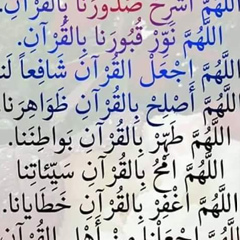 اللَّهُمَّ اشْرَحْ صُدُورَنَا بِالقُرْآنِ.
اللَّهُمَّ نَوِّرْ قُبُورَنا بِالْقُرْآنِ.
اللَّهُمَّ اجْعَلْ القُرْآنَ شافِعاً لنا
اللَّهُمَّ أَصْلِحْ بِالقُرْآنِ ظَواهِرَنا
اللَّهُمَّ طَهِّرْ بِالقُرْآنِ بَواطِنَنا.
اللَّهُمَّ امْحُ بِالقُرْآنِ سَيِّئَاتِنا
اللَّهُمَّ اغْفِرْ بِالقُرْآنِ خَطايانا.
اللَّهُمَّ اجْعَلْنا مِنْ أَهْلِ القُرْآنِ